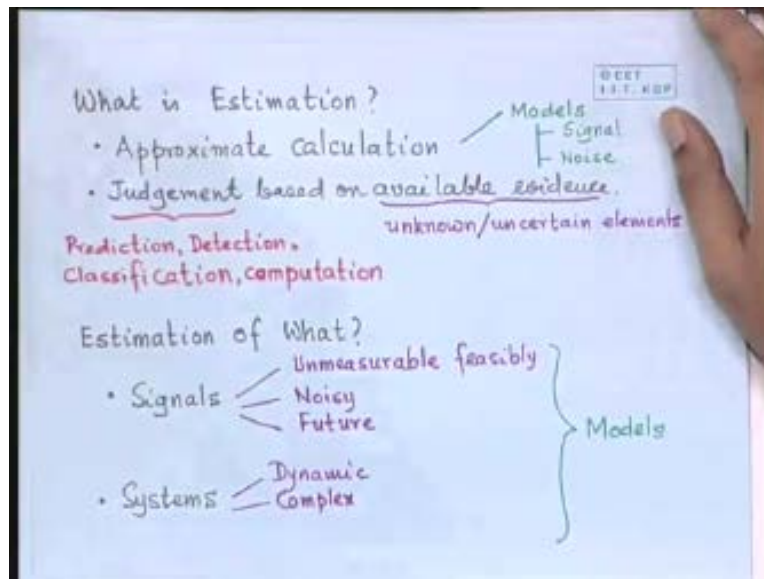 © CET
I.I.T. KGP
What is Estimation?
• Approximate calculation
Models
Signal
Noise
• Judgement based on available evidence.
unknown/uncertain elements
Prediction, Detection.
Classification, computation
Estimation of What?
• Signals
Unmeasurable feasibly
Noisy
Future
Models
• Systems
Dynamic
Complex